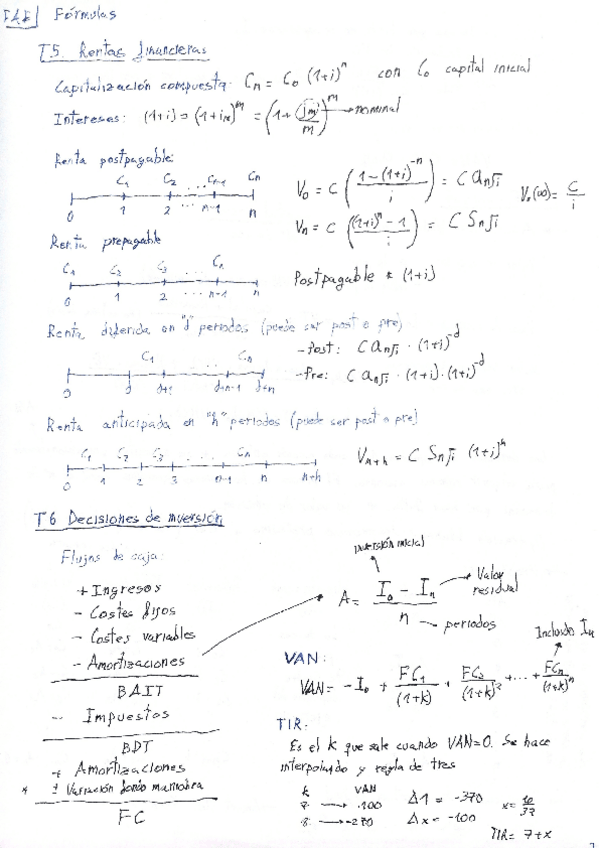 FAE Fórmulas
T.5 Rentas financieras
Capitalización compuesta: Cn = C0 (1+i)^n con C0 capital inicial
Intereses: (1+i) = (1+im)^m = (1 + jm/m)^m → nominal
Renta postpagable:
C1 C2 ... Cn-1 Cn
0 1 2 ... n-1 n
V0 = C ((1-(1+i)^-n)/i) = C an¬i
V0(∞) = C/i
Vn = C (((1+i)^n - 1)/i) = C Sn¬i
Renta prepagable
C1 C2 C3 ... Cn
0 1 2 ... n-1 n
Postpagable * (1+i)
Renta diferida en "d" periodos (puede ser post o pre)
C1 ... Cn
0 d d+1 d+n-1 d+n
- Post: C an¬i · (1+i)^-d
- Pre: C an¬i · (1+i) · (1+i)^-d
Renta anticipada en "h" periodos (puede ser post o pre)
C1 C2 C3 ... Cn
0 1 2 3 n-1 n n+h
Vn+h = C Sn¬i (1+i)^h
T6 Decisiones de inversión
Flujos de caja:
+ Ingresos
- Costes fijos
- Costes variables
- Amortizaciones
BAIT
- Impuestos
BDT
+ Amortizaciones
* ± Variación fondo maniobra
FC
inversión inicial
A = (I0 - In)/n
Valor residual
periodos
VAN:
Incluidos In
VAN = -I0 + FC1/(1+k) + FC2/(1+k)^2 + ... + FCn/(1+k)^n
TIR:
Es el k que sale cuando VAN=0. Se hace
interpolando y regla de tres
k VAN
7 → 100 Δ1 = -370 x = 10/37
8 → -270 Δx = -100
TIR = 7+x